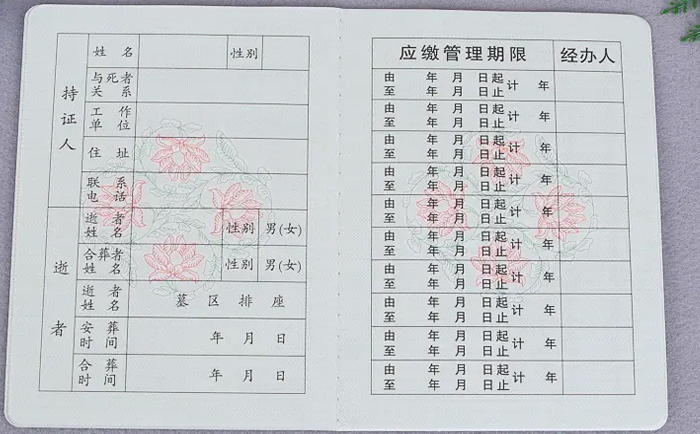 持证人
姓 名 性别
与死者
关 系
工 作
单 位
住 址
联 系
电 话
逝者
逝 者
姓 名 性别 男(女)
合葬者
姓 名 性别 男(女)
逝 者
姓 名 墓 区 排 座
安 葬
时 间 年 月 日
合 葬
时 间 年 月 日
应缴管理期限 经办人
由 年 月 日起
至 年 月 日止 计 年
由 年 月 日起
至 年 月 日止 计 年
由 年 月 日起
至 年 月 日止 计 年
由 年 月 日起
至 年 月 日止 计 年
由 年 月 日起
至 年 月 日止 计 年
由 年 月 日起
至 年 月 日止 计 年
由 年 月 日起
至 年 月 日止 计 年
由 年 月 日起
至 年 月 日止 计 年
由 年 月 日起
至 年 月 日止 计 年
由 年 月 日起
至 年 月 日止 计 年